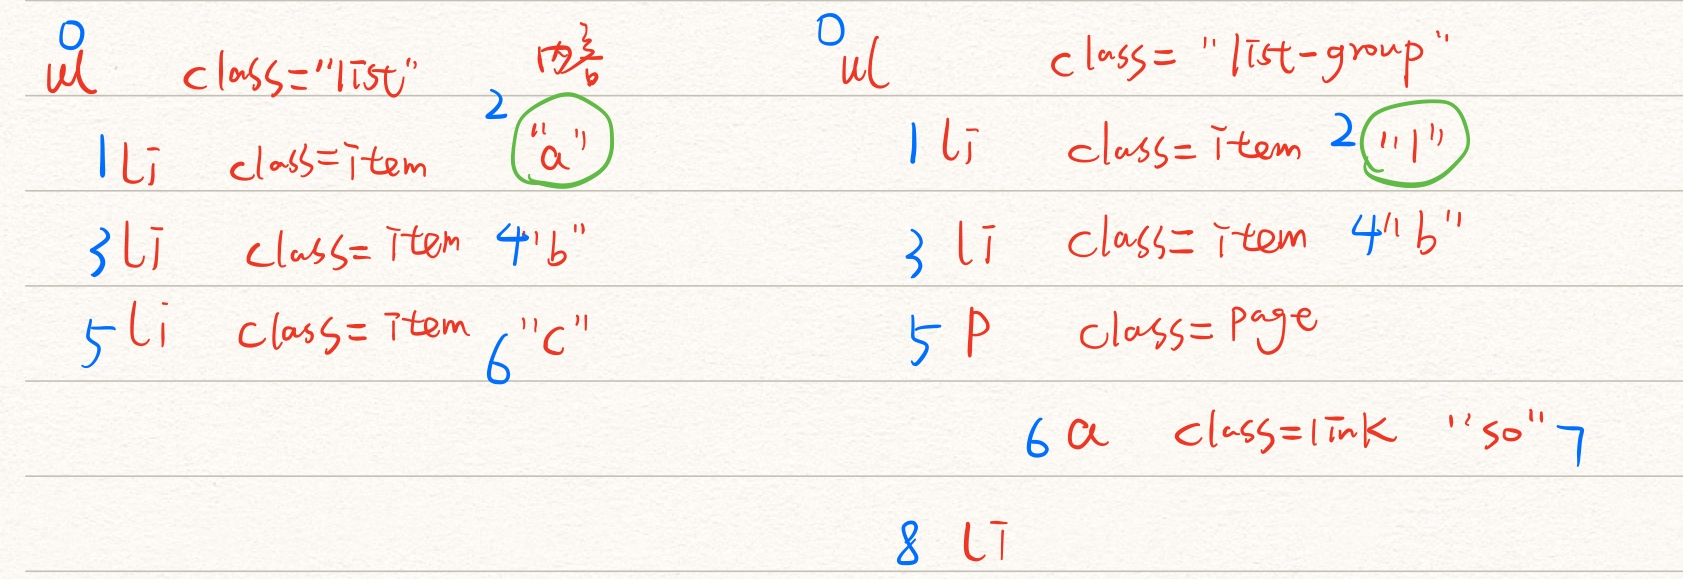 0
ul class="list"
1 li class=item 2 "a"
3 li class=item 4 "b"
5 li class=item 6 "c"
0
ul class="list-group"
1 li class=item 2 "1"
3 li class=item 4 "b"
5 p class=page
6 a class=link "so" 7
8 li